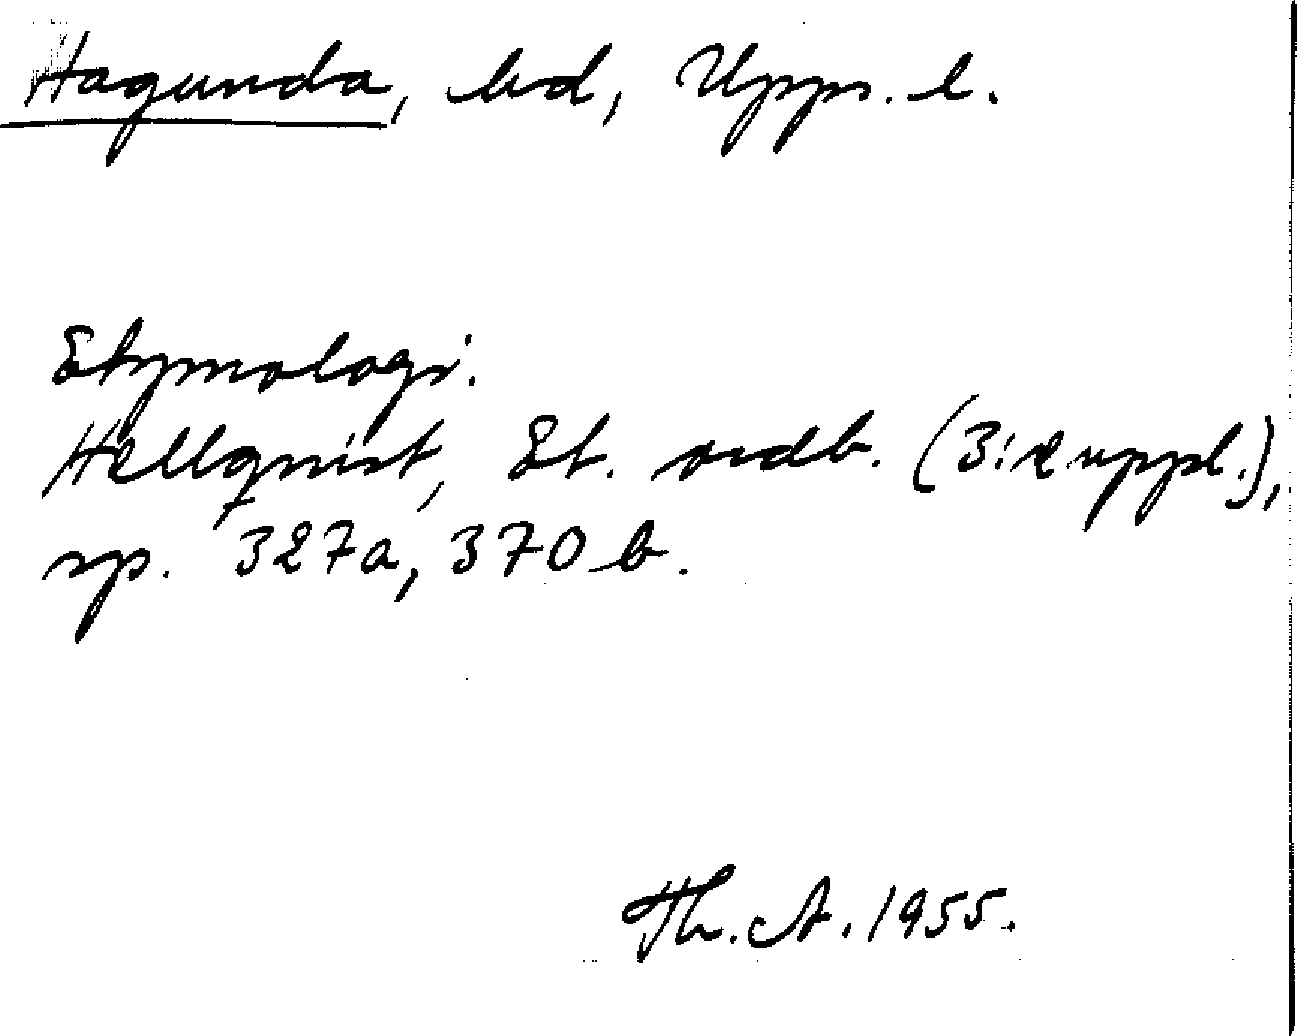 Hagunda, hd, Upps. l.
Etymologi.
Hellquist, Et. ordb. (3:e uppl.),
sp. 327a, 370 b.
Th. A. 1955.